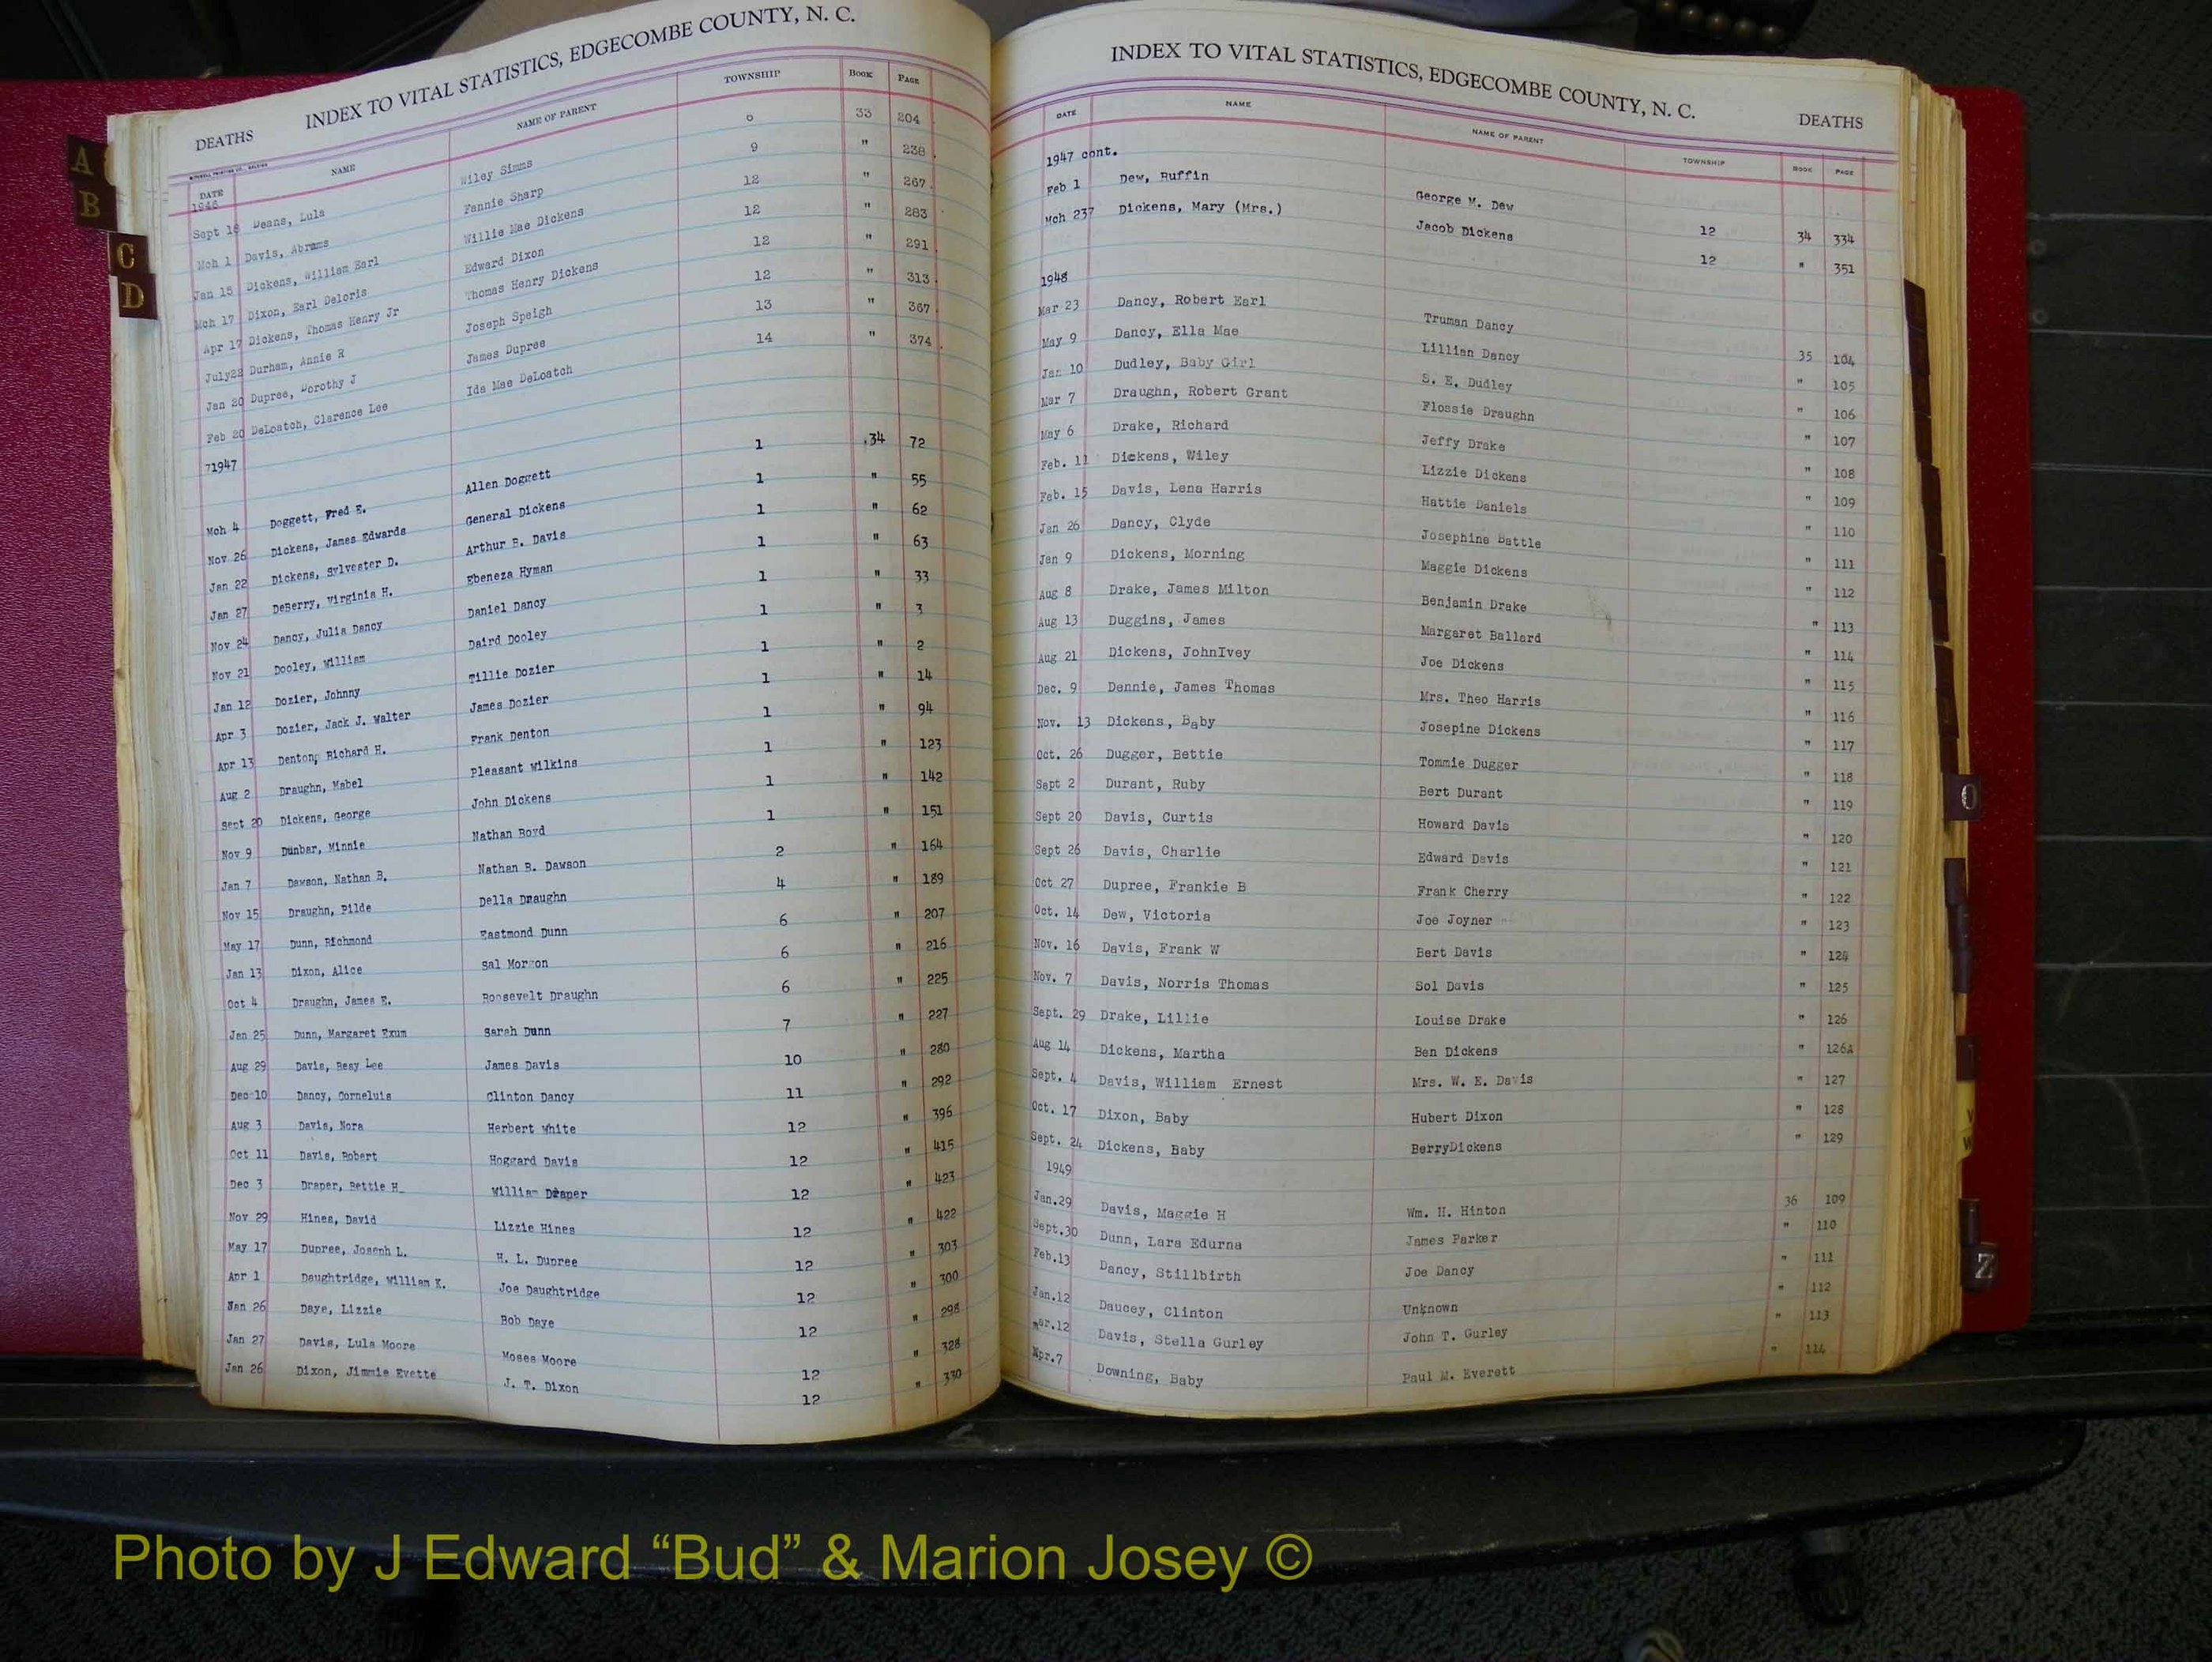 INDEX TO VITAL STATISTICS, EDGECOMBE COUNTY, N. C.
DEATHS
DATE NAME NAME OF PARENT TOWNSHIP BOOK PAGE
1946
Sept 18 Deans, Lula Wiley Simms 33 204
Mch 1 Davis, Abrams Fannie Sharp 9 " 238
Jan 15 Dickens, William Earl Willie Mae Dickens 12 " 267
Mch 17 Dixon, Earl Deloris Edward Dixon 12 " 283
Apr 17 Dickens, Thomas Henry Jr Thomas Henry Dickens 12 " 291
July22 Durham, Annie R Joseph Speigh 12 " 313
Jan 20 Dupree, Dorothy J James Dupree 13 " 367
Feb 20 DeLoatch, Clarence Lee Ida Mae DeLoatch 14 " 374
1947
Mch 4 Doggett, Fred E. Allen Doggett 1 34 72
Nov 26 Dickens, James Edwards General Dickens 1 " 55
Jan 22 Dickens, Sylvester D. Arthur B. Davis 1 " 62
Jan 27 DeBerry, Virginia H. Ebeneza Hyman 1 " 63
Nov 24 Dancy, Julia Dancy Daniel Dancy 1 " 33
Nov 21 Dooley, William Daird Dooley 1 " 3
Jan 12 Dozier, Johnny Tillie Dozier 1 " 2
Apr 3 Dozier, Jack J. Walter James Dozier 1 " 14
Apr 13 Denton, Richard H. Frank Denton 1 " 94
Aug 2 Draughn, Mabel Pleasant Wilkins 1 " 123
Sept 20 Dickens, George John Dickens 1 " 142
Nov 9 Dunbar, Minnie Nathan Boyd 1 " 151
Jan 7 Dawson, Nathan B. Nathan B. Dawson 2 " 164
Nov 15 Draughn, Pilde Della Draughn 4 " 189
May 17 Dunn, Richmond Eastmond Dunn 6 " 207
Jan 13 Dixon, Alice Sal Morgon 6 " 216
Oct 4 Draughn, James E. Roosevelt Draughn 6 " 225
Jan 25 Dunn, Margaret Exum Sarah Dunn 7 " 227
Aug 29 Davis, Resy Lee James Davis 10 " 280
Dec 10 Dancy, Corneluis Clinton Dancy 11 " 292
Aug 3 Davis, Nora Herbert White 12 " 396
Oct 11 Davis, Robert Hoggard Davis 12 " 415
Dec 3 Draper, Bettie H. William Draper 12 " 423
Nov 29 Hines, David Lizzie Hines 12 " 422
May 17 Dupree, Joseph L. H. L. Dupree 12 " 303
Apr 1 Daughtridge, William K. Joe Daughtridge 12 " 300
Jan 26 Daye, Lizzie Bob Daye 12 " 298
Jan 27 Davis, Lula Moore Moses Moore 12 " 328
Jan 26 Dixon, Jimmie Evette J. T. Dixon 12 " 330
INDEX TO VITAL STATISTICS, EDGECOMBE COUNTY, N. C.
DEATHS
DATE NAME NAME OF PARENT TOWNSHIP BOOK PAGE
1947 cont.
Feb 1 Dew, Ruffin George M. Dew 12 34 334
Mch 237 Dickens, Mary (Mrs.) Jacob Dickens 12 " 351
1948
Mar 23 Dancy, Robert Earl Truman Dancy 35 104
May 9 Dancy, Ella Mae Lillian Dancy " 105
Jan 10 Dudley, Baby Girl S. E. Dudley " 106
Mar 7 Draughn, Robert Grant Flossie Draughn " 107
May 6 Drake, Richard Jeffy Drake " 108
Feb. 11 Dickens, Wiley Lizzie Dickens " 109
Feb. 15 Davis, Lena Harris Hattie Daniels " 110
Jan 26 Dancy, Clyde Josephine Battle " 111
Jan 9 Dickens, Morning Maggie Dickens " 112
Aug 8 Drake, James Milton Benjamin Drake " 113
Aug 13 Duggins, James Margaret Ballard " 114
Aug 21 Dickens, JohnIvey Joe Dickens " 115
Dec. 9 Dennie, James Thomas Mrs. Theo Harris " 116
Nov. 13 Dickens, Baby Josepine Dickens " 117
Oct. 26 Dugger, Bettie Tommie Dugger " 118
Sept 2 Durant, Ruby Bert Durant " 119
Sept 20 Davis, Curtis Howard Davis " 120
Sept 26 Davis, Charlie Edward Davis " 121
Oct 27 Dupree, Frankie B Frank Cherry " 122
Oct. 14 Dew, Victoria Joe Joyner " 123
Nov. 16 Davis, Frank W Bert Davis " 124
Nov. 7 Davis, Norris Thomas Sol Davis " 125
Sept. 29 Drake, Lillie Louise Drake " 126
Aug 14 Dickens, Martha Ben Dickens " 126A
Sept. 4 Davis, William Ernest Mrs. W. E. Davis " 127
Oct. 17 Dixon, Baby Hubert Dixon " 128
Sept. 24 Dickens, Baby BerryDickens " 129
1949
Jan.29 Davis, Maggie H Wm. H. Hinton 36 109
Sept.30 Dunn, Lara Edurna James Parker " 110
Feb.13 Dancy, Stillbirth Joe Dancy " 111
Jan.12 Daucey, Clinton Unknown " 112
mar.12 Davis, Stella Gurley John T. Gurley " 113
Apr.7 Downing, Baby Paul M. Everett " 114
A
B
C
D
O
V
W
Z
Photo by J Edward “Bud” & Marion Josey ©